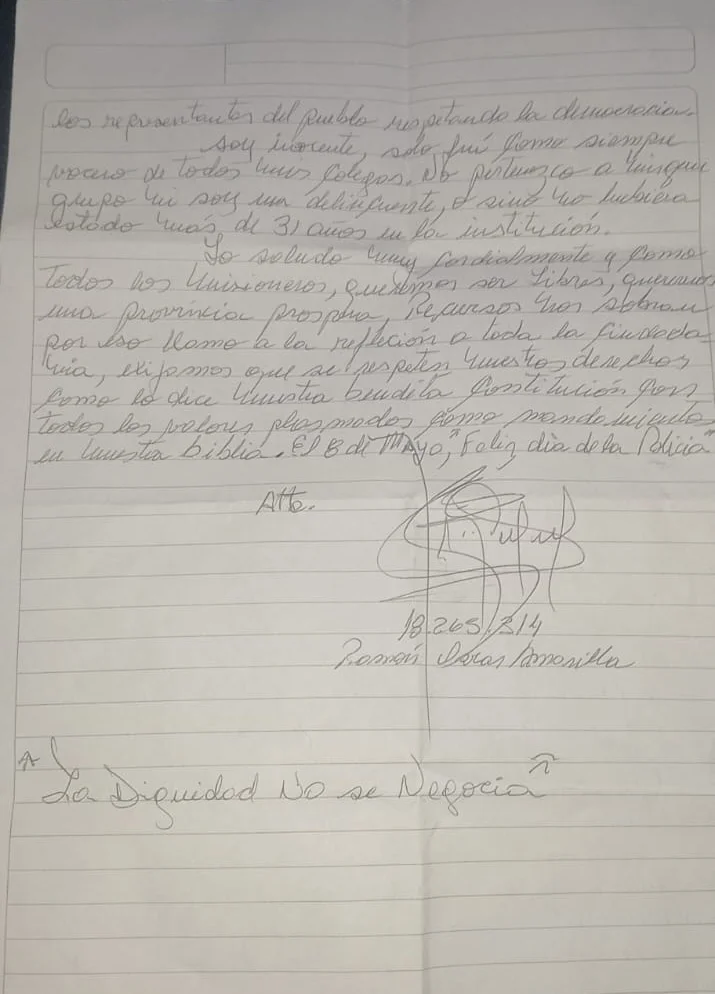 los representantes del pueblo respetando la democracia.
Soy inocente, solo fuí como siempre
vocero de todos mis colegas. No pertenezco a ningún
grupo ni soy un delincuente, o sino no hubiera
estado más de 31 años en la institución.
Lo saludo muy cordialmente y como
todos los misioneros, queremos ser libres, queremos
una provincia prospera, Recursos nos sobran
por eso llamo a la refleción a toda la ciudada-
nia, exijamos que se respeten nuestros derechos
como lo dice nuestra bendita Constitución con
todos los valores plasmados como mandamiento
en nuestra biblia. El 8 de Mayo, "Feliz día de la Policia"
Atte.
18.265.314
Ramón Amarilla
"La Dignidad No se Negocia"